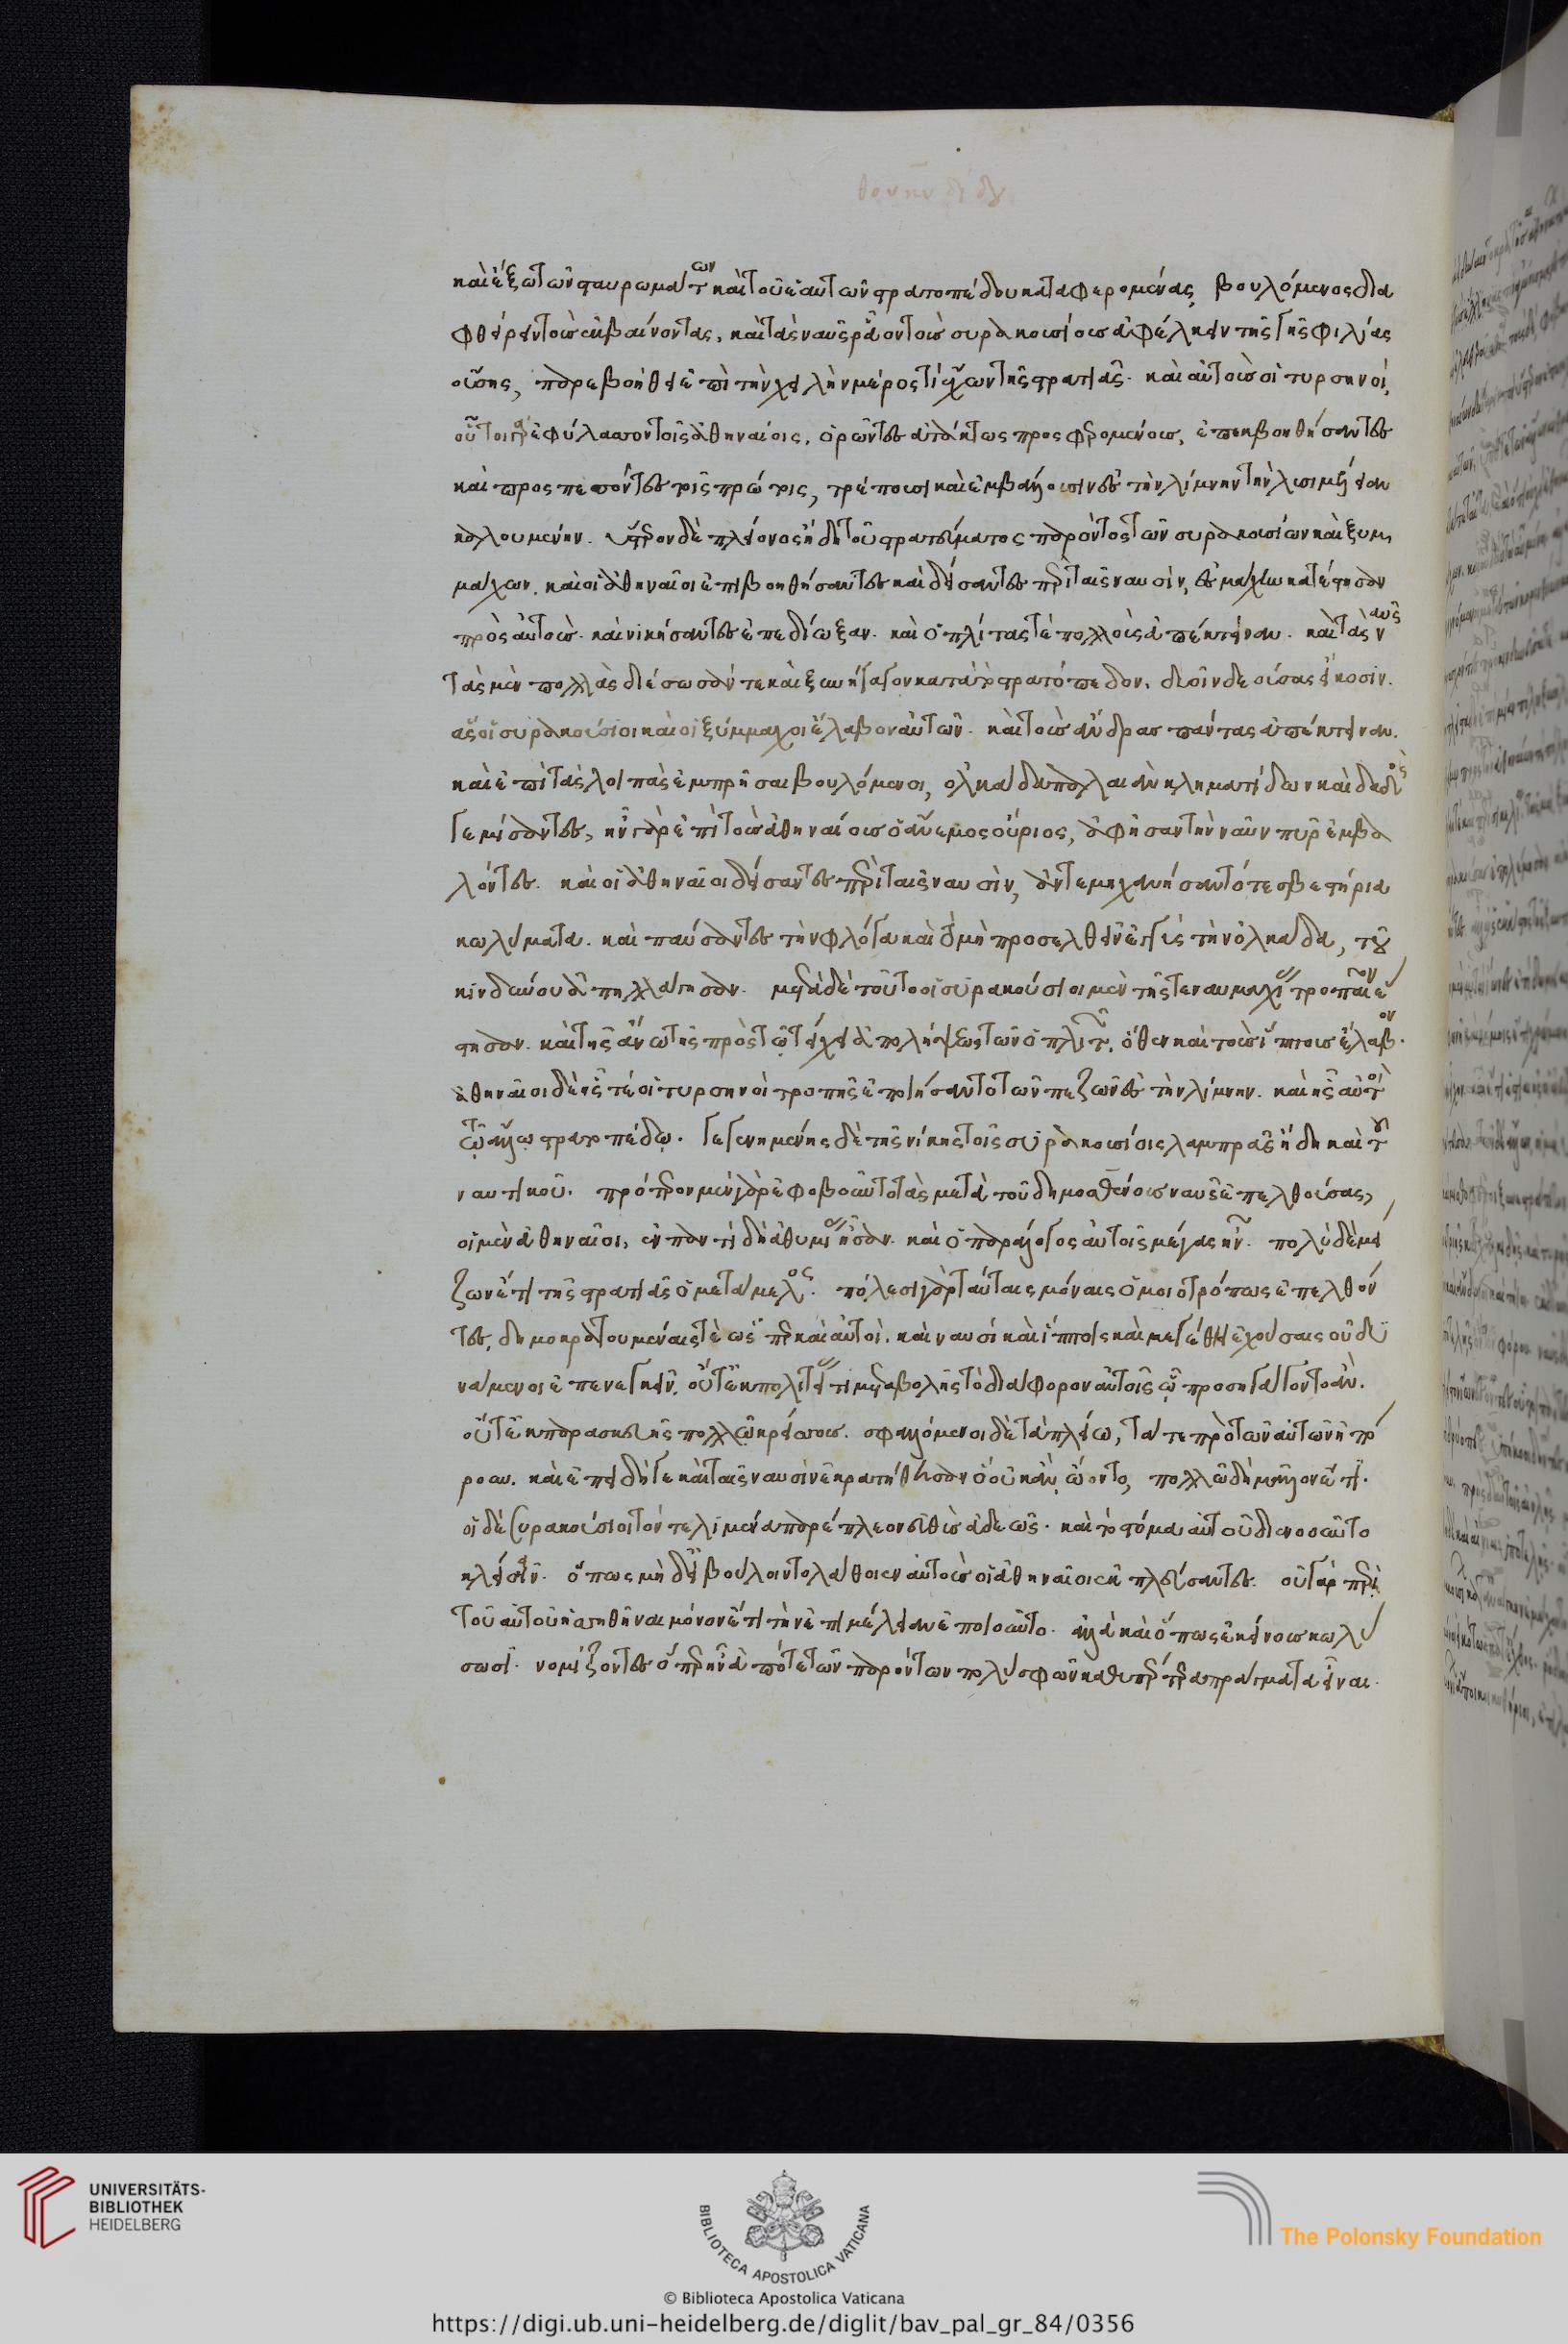 καὶ ἔξω τῶν σταυρωμάτων καὶ τοῦ ἑαυτῶν στρατοπέδου καταφερομένας, βουλόμενος δια
φθείρειν τοὺς ἐκβαίνοντας, καὶ τὰς ναῦς ῥᾶον τοὺς συρακουσίους ἀφέλκειν τῆς γῆς φιλίας
οὔσης, παρεβοήθει ἐπὶ τὴν χειλὴν μέρος τί ἔχων τῆς στρατιᾶς. καὶ αὐτοὺς οἱ τυρσηνοί,
οὗτοι γὰρ ἐφύλασσον τοῖς ἀθηναίοις, ὁρῶντες ἀτάκτως προσφερομένους, ἐπεκβοηθήσαντες
καὶ προσπεσόντες τοῖς πρώτοις, τρέπουσι καὶ ἐμβάλλουσιν ἐς τὴν λίμνην τὴν λυσιμέλειαν
καλουμένην. ὕστερον δὲ πλείονος ἤδη τοῦ στρατεύματος παρόντος τῶν συρακουσίων καὶ ξυμ
μάχων. καὶ οἱ ἀθηναῖοι ἐπιβοηθήσαντες καὶ δείσαντες περὶ ταῖς ναυσὶν, ἐς μάχην κατέστησαν
πρὸς αὐτοὺς. καὶ νικήσαντες ἐπεδίωξαν. καὶ ὁπλίτας τὲ πολλοὺς ἀπέκτειναν. καὶ τὰς ναῦς
τὰς μὲν πολλὰς διέσωσάν τε καὶ ξυνήγαγον κατὰ τὸ στρατόπεδον. δυοῖν δε οὔσας εἴκοσιν.
ἃς οἱ συρακούσιοι καὶ οἱ ξύμμαχοι ἔλαβον αὐτῶν. καὶ τοὺς ἄνδρας πάντας ἀπέκτειναν.
καὶ ἐπὶ τὰς λοιπὰς ἐμπρῆσαι βουλόμενοι, ὁλκάδα παλαιὰν κληματίδων καὶ δαδὸς
γεμίσαντες, ἦν γὰρ ἐπὶ τοὺς ἀθηναίους ὁ ἄνεμος οὔριος, ἀφῆσαν τὴν ναῦν πῦρ ἐμβα
λόντες. καὶ οἱ ἀθηναῖοι δείσαντες περὶ ταῖς ναυσὶν, ἀντεμηχανήσαντό τε σβεστήρια
κωλύματα. καὶ παύσαντες τὴν φλόγα καὶ τὸ μὴ προσελθεῖν ἐγγὺς τὴν ὁλκάδα, τοῦ
κινδύνου ἀπηλλάγησαν. μετὰ δὲ τοῦτο οἱ συρακούσιοι μὲν τῆς τε ναυμαχίας τροπαῖον ἔ
στησαν. καὶ τῆς ἄνω τῆς πρὸς τῷ τείχει ἀπολήψεως τῶν ὁπλιτῶν. ὅθεν καὶ τοὺς ἵππους ἔλαβον.
ἀθηναῖοι δὲ ἧς τέ οἱ τυρσηνοὶ τροπῆς ἐποιήσαντο τῶν πεζῶν ἐς τὴν λίμνην. καὶ ἧς αὐτοὶ
τῷ ἄλλῳ στρατοπέδῳ. γεγενημένης δὲ τῆς νίκης τοῖς συρακουσίοις λαμπρᾶς ἤδη καὶ τοῦ
ναυτικοῦ. πρότερον μὲν γὰρ ἐφοβοῦντο τὰς μετὰ τοῦ δημοσθένους ναῦς ἐπελθούσας,
οἱ μὲν ἀθηναῖοι, ἐν παντὶ δὴ ἀθυμίας ἦσαν. καὶ ὁ παράλογος αὐτοῖς μέγας ἦν. πολὺ δὲ μεί
ζων ἔτι τῆς στρατιᾶς ὁ μετάμελος. πόλεσι γὰρ ταύταις μόναις ὁμοιοτρόποις ἐπελθόν
τες, δημοκρατουμέναις τὲ ὥσπερ καὶ αὐτοὶ. καὶ ναυσὶ καὶ ἵπποις καὶ μεγέθει ἐχούσαις οὐ δυ
νάμενοι ἐπενεγκεῖν, οὔτ' ἐκ πολιτείας τι μεταβολῆς τὸ διάφορον αὐτοῖς ᾧ προσηγάγοντο ἂν.
οὔτ' ἐκ παρασκευῆς πολλῷ κρείσσους. σφαλλόμενοι δὲ τὰ πλείω, τά τε πρὸ τῶν αὐτῶν ἠπό
ρουν. καὶ ἐπειδή γε καὶ ταῖς ναυσὶν ἐκρατήθησαν ὃ οὐκ ἂν ᾤοντο, πολλῷ δὴ μᾶλλον ἔτι.
οἱ δὲ συρακούσιοι τόν τε λιμένα παρέπλεον εὐθὺς ἀδεῶς. καὶ τὸ στόμα αὐτοῦ διενοοῦντο
κλείσειν. ὅπως μηδ' εἰ βούλοιντο λάθοιεν αὐτοὺς οἱ ἀθηναῖοι ἐκπλεύσαντες. οὐ γὰρ περὶ
τοῦ αὐτοὶ σωθῆναι μόνον ἔτι τὴν ἐπιμέλειαν ἐποιοῦντο. ἀλλὰ καὶ ὅπως ἐκείνους κωλύ
σωσι. νομίζοντες ὅπερ ἦν ἀπό τε τῶν παρόντων πολὺ σφῶν καθυπέρτερα πράγματα εἶναι.